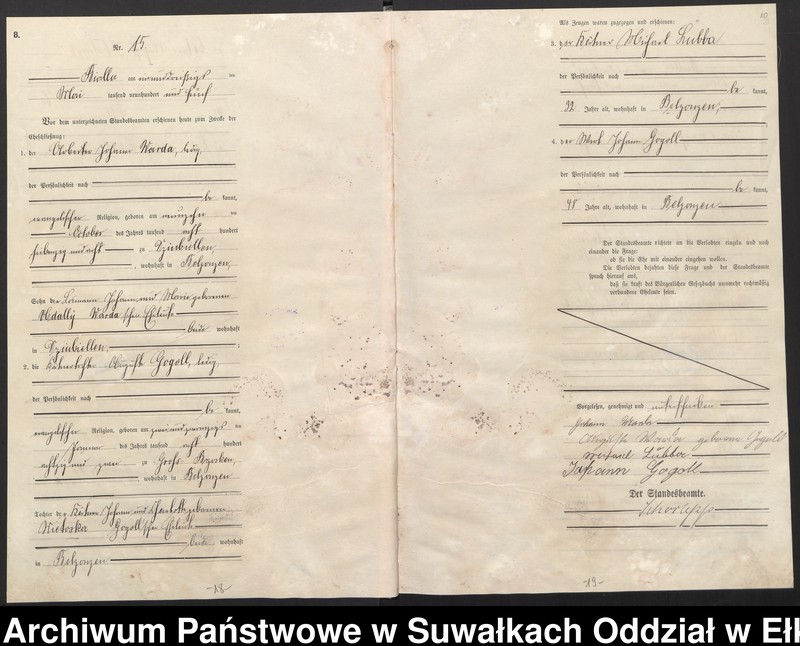 B.
Nr. 15
Bialla am einunddreißigs ten
Mai tausend neunhundert und fünf
Vor dem unterzeichneten Standesbeamten erschienen heute zum Zwecke der
Eheschließung:
1. der Arbeiter Johann Warda, ledig,
der Persönlichkeit nach
be kannt,
evangelischer Religion, geboren am neunzehn ten
October des Jahres tausend acht hundert
siebenzig und acht zu Dziubiellen,
, wohnhaft in Belzonzen,
Sohn der Losmann Johann und Marie geborenen
Warda'schen Eheleute
beide wohnhaft
in Dziubiellen, ;
2. die Käthnertochter Auguste Gogoll, ledig,
der Persönlichkeit nach
be kannt,
evangelischer Religion, geboren am zwei und zwanzigs ten
Januar des Jahres tausend acht hundert
achtzig und zwei zu Groß
wohnhaft in Belzonzen
Tochter der Käthner Johann und Charlotte geborenen
Gogoll'schen Eheleute
beide wohnhaft
in Belzonzen
-18-
Als Zeugen waren zugezogen und erschienen:
3. der Käthner Michael Lubba
der Persönlichkeit nach
be kannt,
32 Jahre alt, wohnhaft in Belzonzen;
4. der Wirt Johann Gogoll
der Persönlichkeit nach
be kannt,
48 Jahre alt, wohnhaft in Belzonzen
Der Standesbeamte richtete an die Verlobten einzeln und nach
einander die Frage:
ob sie die Ehe mit einander eingehen wollen.
Die Verlobten bejahten diese Frage und der Standesbeamte
sprach hierauf aus,
daß sie kraft des Bürgerlichen Gesetzbuchs nunmehr rechtmäßig
verbundene Eheleute seien.
Vorgelesen, genehmigt und unterschrieben
Johann Warda
Auguste Warda geborene Gogoll
Michael Lubba
Johann Gogoll
Der Standesbeamte.
-19-
Archiwum Państwowe w Suwałkach Oddział w Ełk